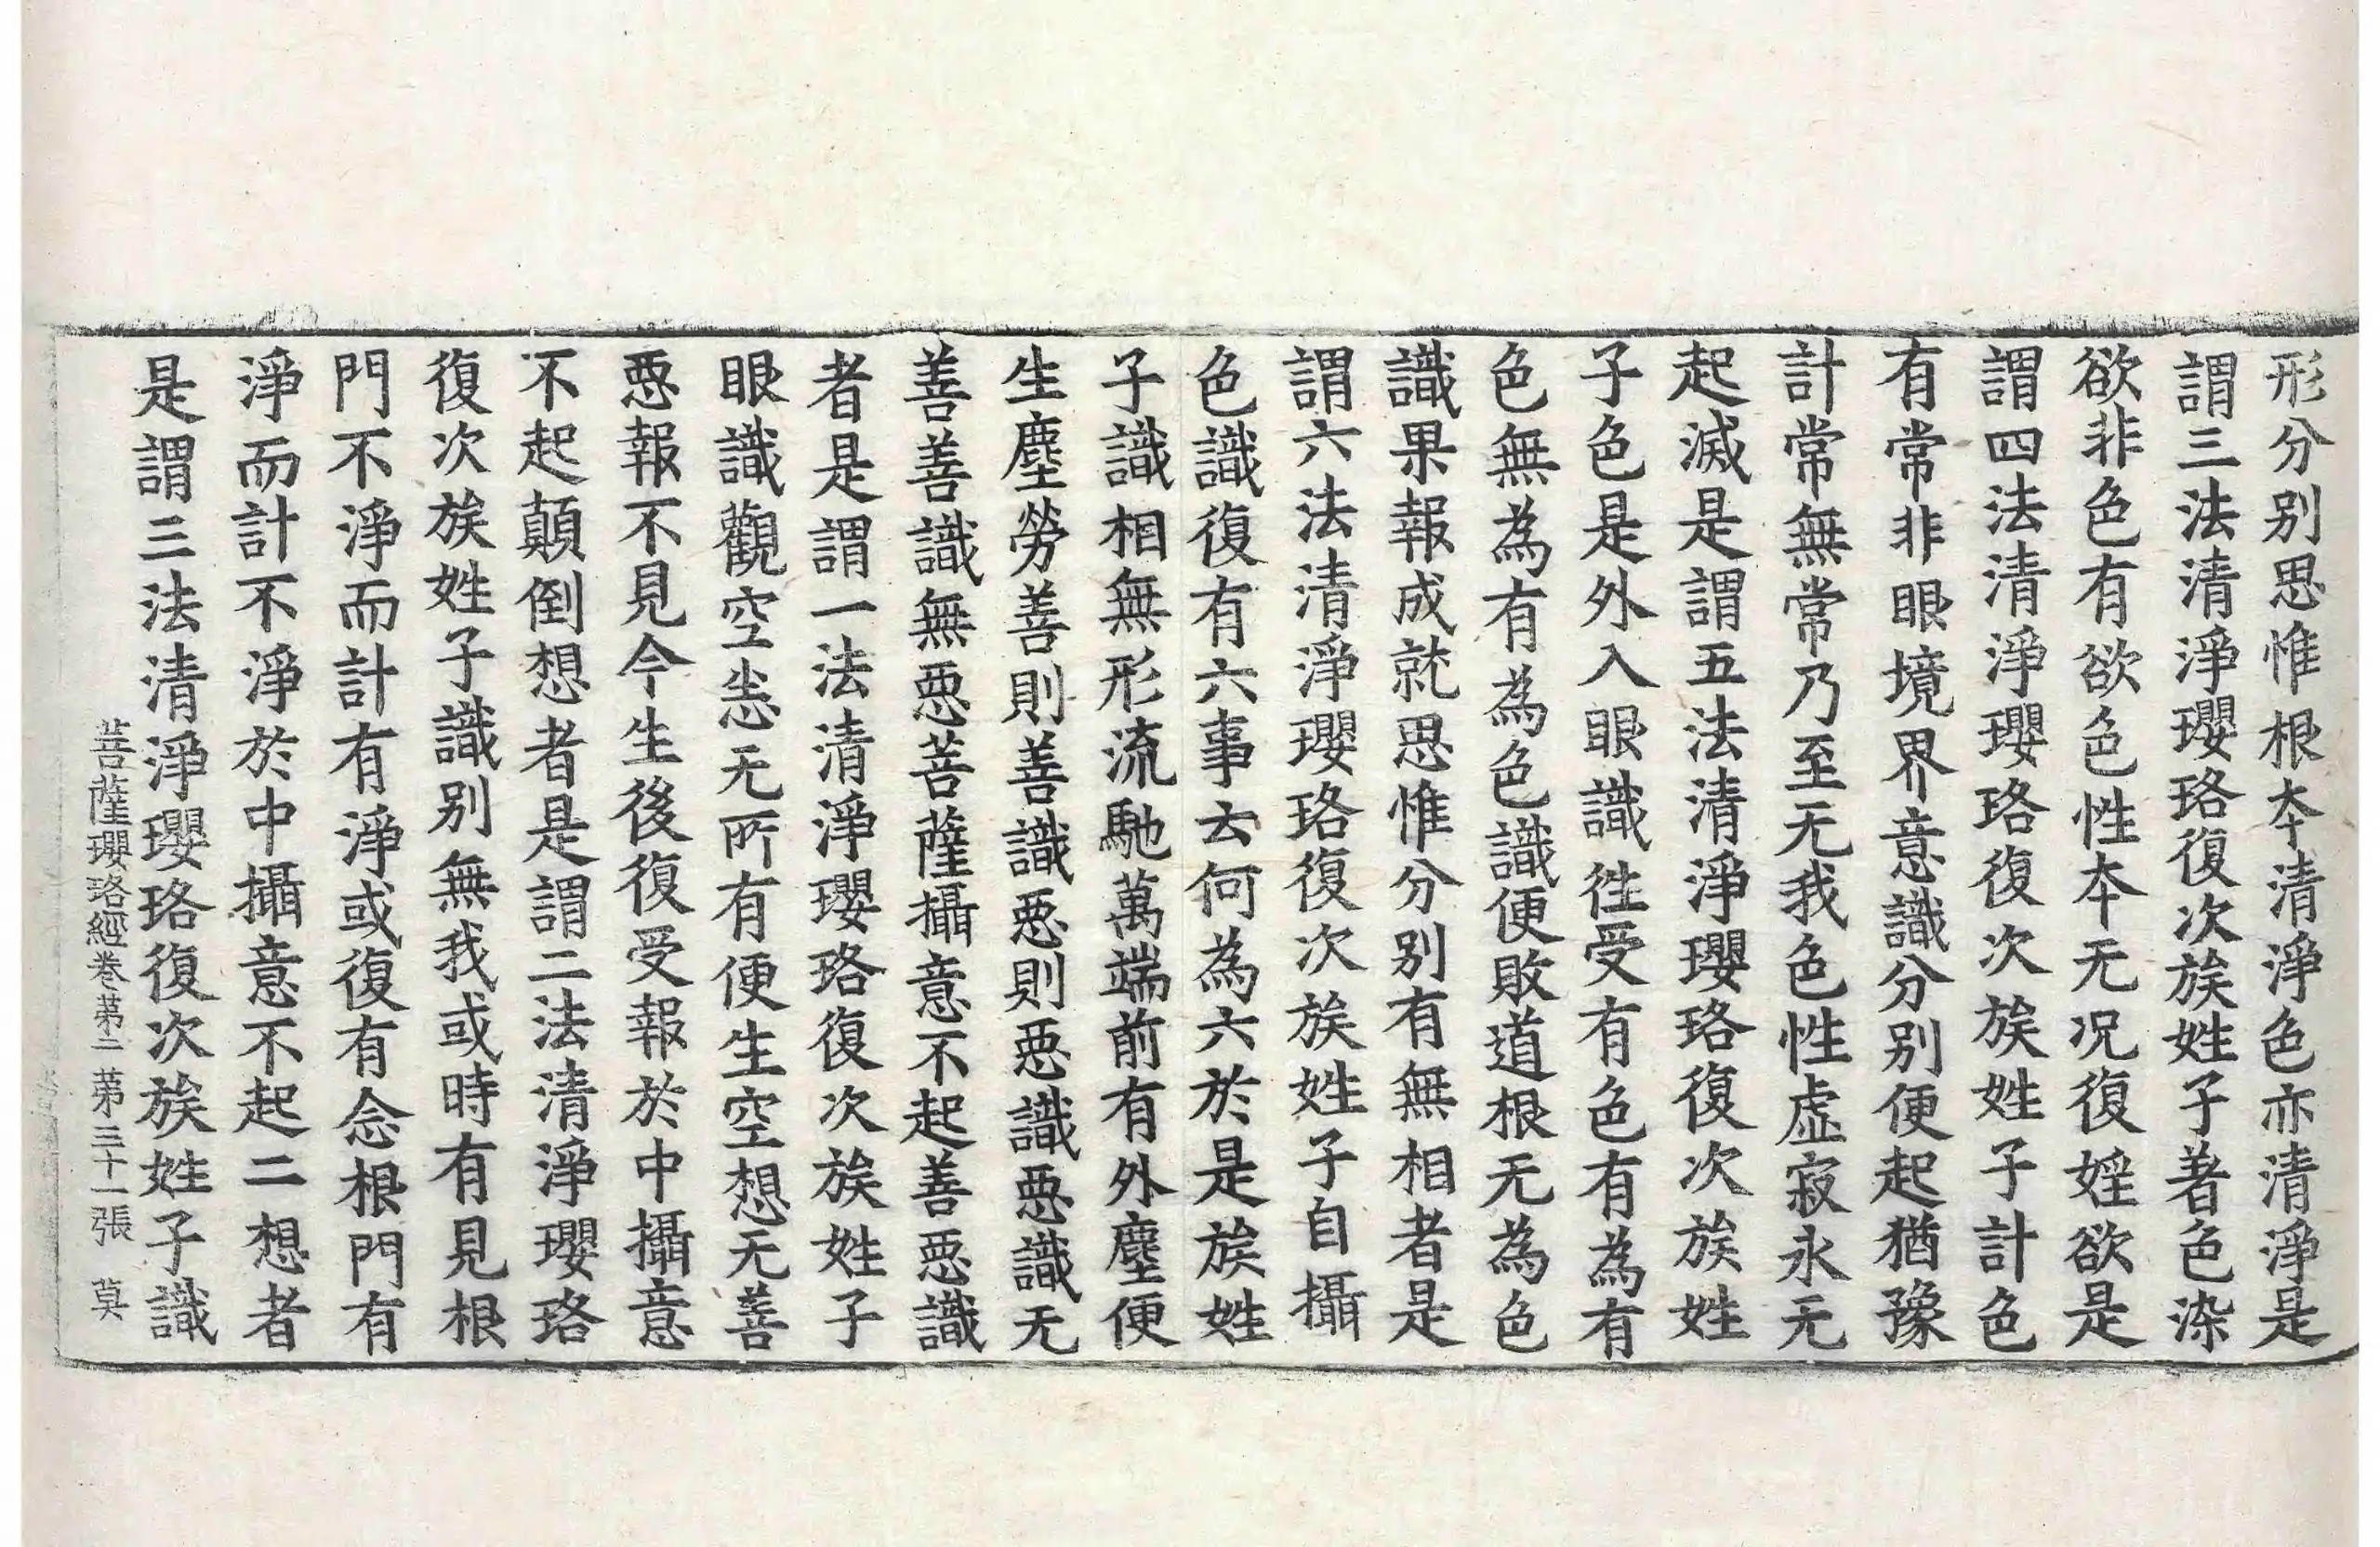 形分別思惟根本清淨色亦清淨是
謂三法清淨瓔珞復次族姓子著色染
欲非色有欲色性本无况復婬欲是
謂四法清淨瓔珞復次族姓子計色
有常非眼境界意識分別便起猶豫
計常無常乃至无我色性虛寂永无
起滅是謂五法清淨瓔珞復次族姓
子色是外入眼識往受有色有為有
色無為有為色識便敗道根无為色
識果報成就思惟分別有無相者是
謂六法清淨瓔珞復次族姓子自攝
色識復有六事云何為六於是族姓
子識相無形流馳萬端前有外塵便
生塵勞善則善識惡則惡識惡識无
善善識無惡菩薩攝意不起善惡識
者是謂一法清淨瓔珞復次族姓子
眼識觀空恚无所有便生空想无善
惡報不見今生後復受報於中攝意
不起顛倒想者是謂二法清淨瓔珞
復次族姓子識別無我或時有見根
門不淨而計有淨或復有念根門有
淨而計不淨於中攝意不起二想者
是謂三法清淨瓔珞復次族姓子識
菩薩瓔珞經卷苐二 苐三十一張 莫